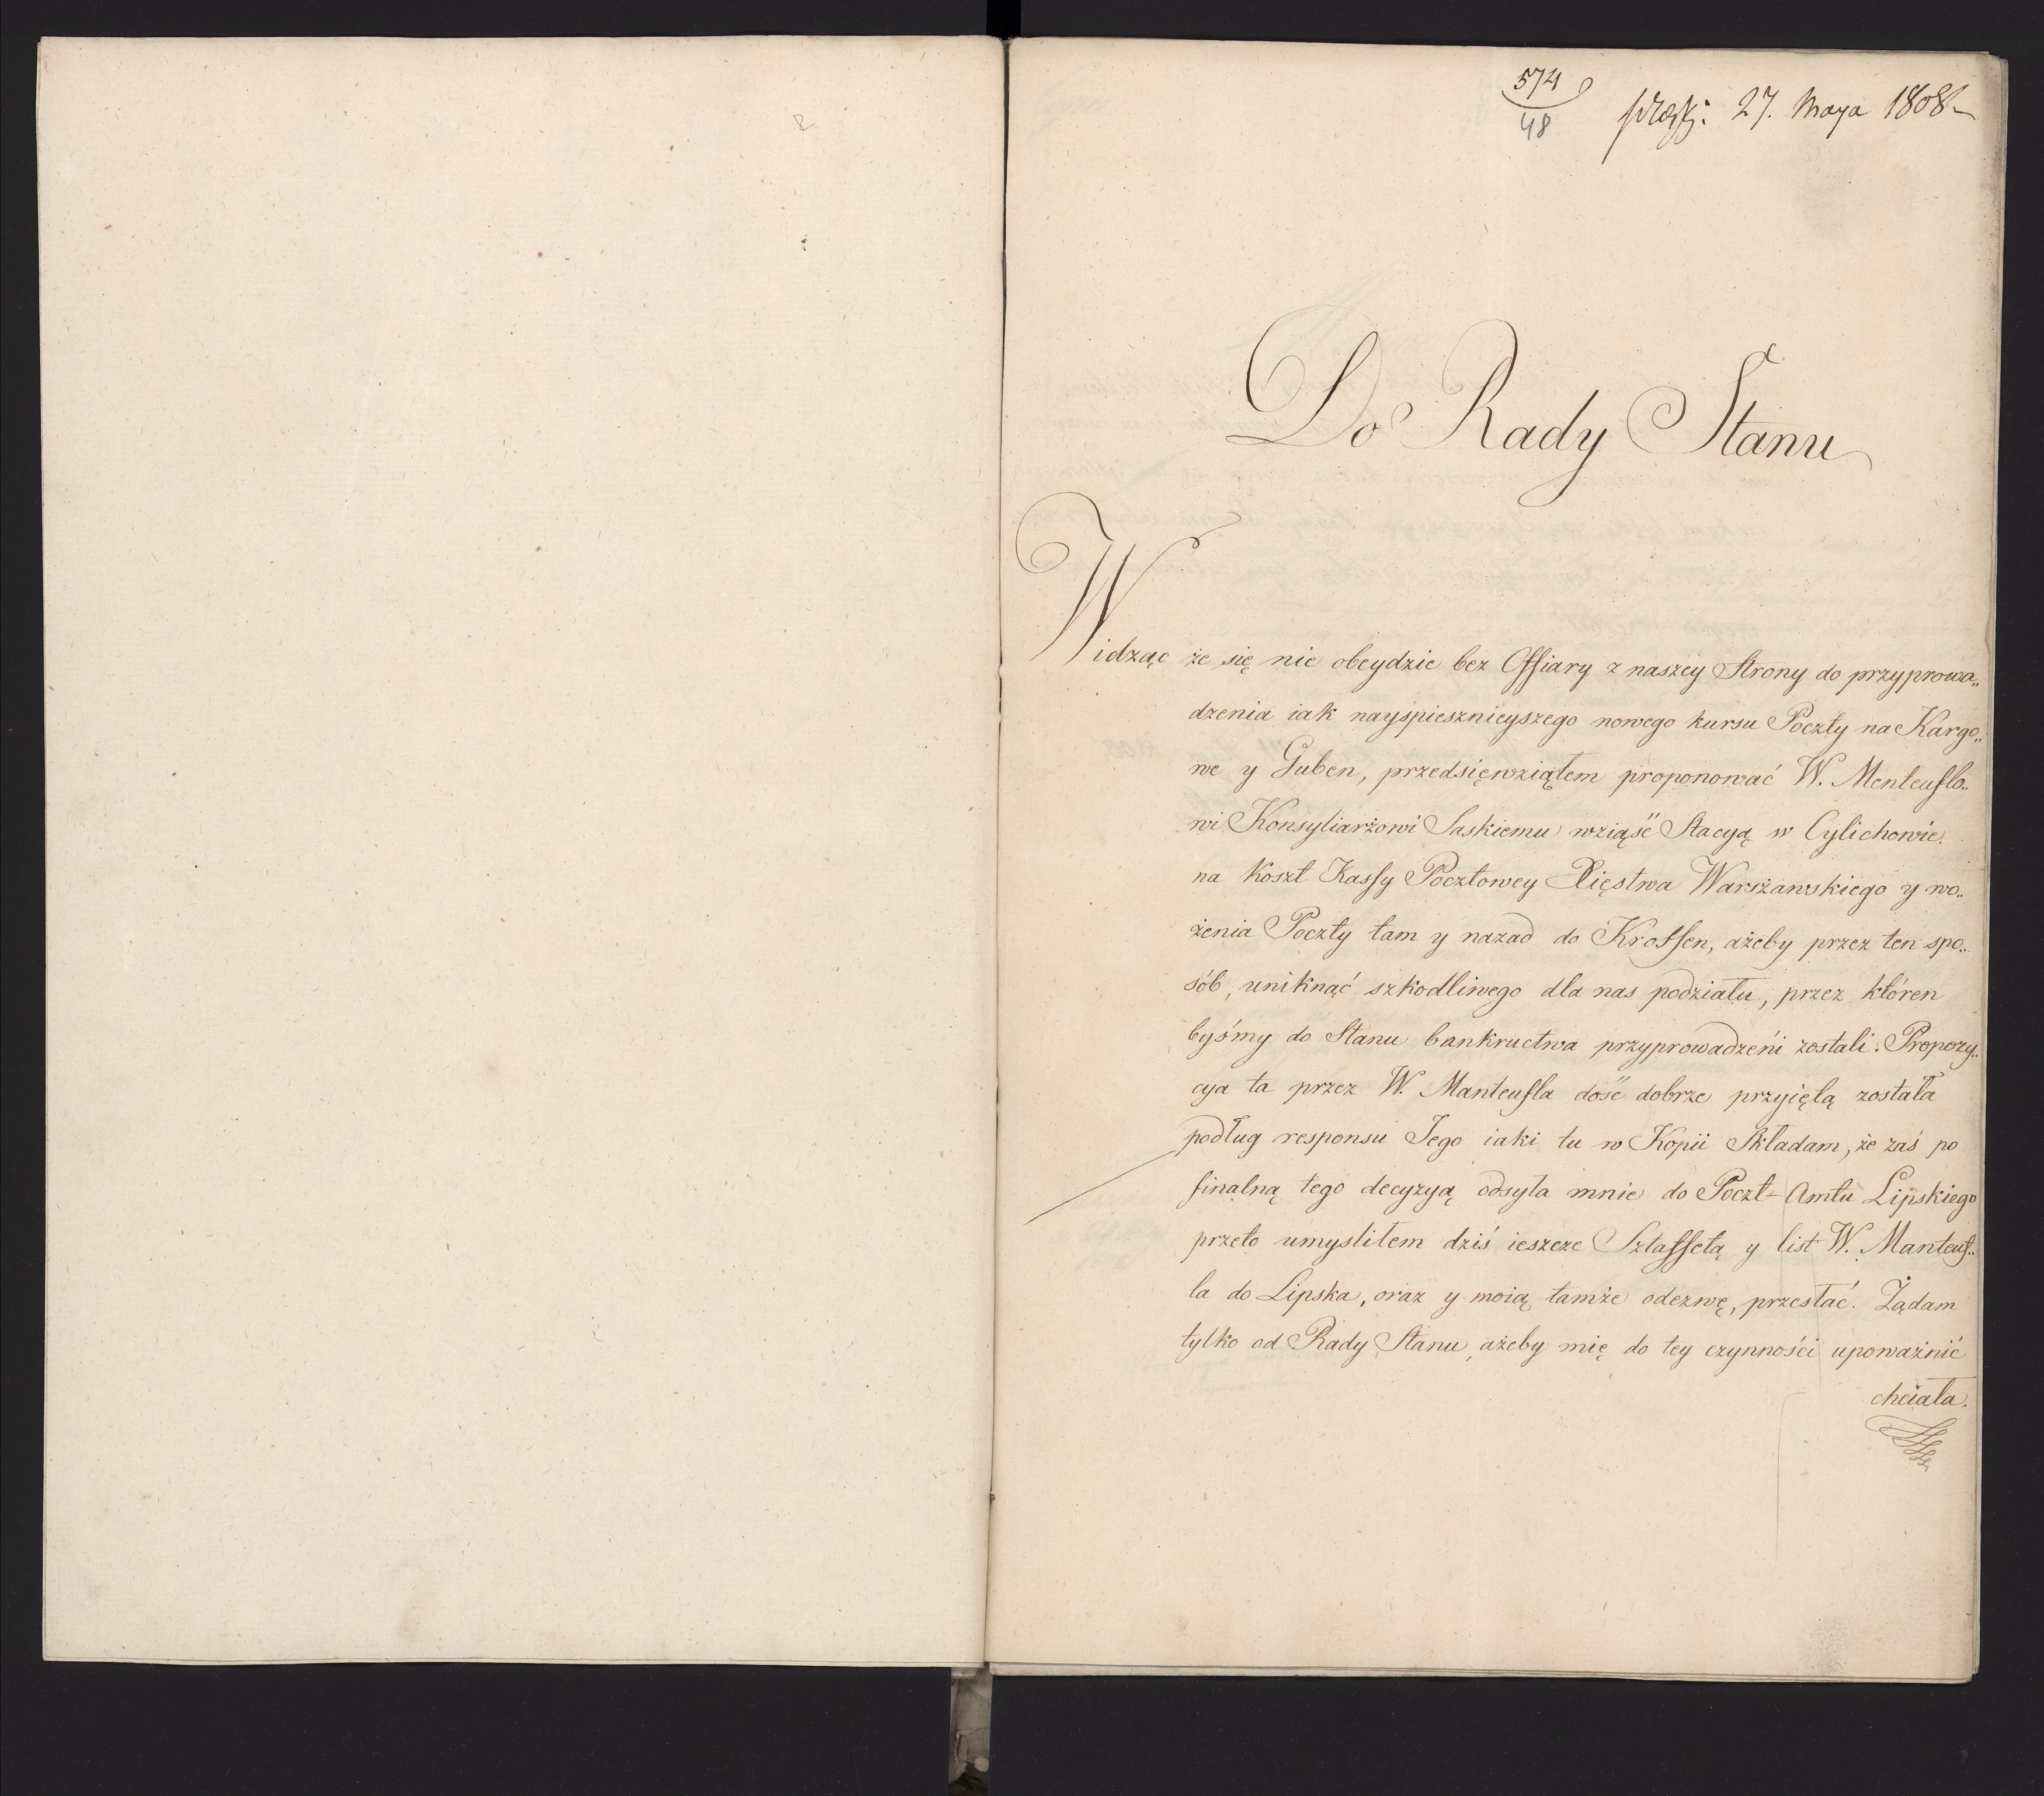 574
48
27. Maya 1808
Do Rady Stanu
Widząc że się nie obeydzie bez Offiary z naszey Strony do przyprowa„
dzenia iak nayspiesznieyszego nowego kursu Poczty na Kargo„
we y Guben, przedsięwziąłem proponować W. Menteuflo„
wi Konsyliarzowi Saskiemu wziąść Stacyą w Cylichowie
na koszt Kassy Pocztowey Xięstwa Warszawskiego y wo„
żenia Poczty tam y nazad do Krossen, ażeby przez ten spo„
sób, uniknąć szkodliwego dla nas podziału, przez któren
byśmy do Stanu bankructwa przyprowadzeni zostali. Propozy„
cya ta przez W. Manteufla dość dobrze przyiętą została
podług responsu Jego iaki tu w Kopii Składam, że zaś po
finalną tego decyzyą odsyła mnie do Poczt-Amtu Lipskiego
przeto umysliłem dziś ieszcze Sztaffetą y list W. Manteuf„
la do Lipska, oraz y moią tamże odezwę, przesłać. Żądam
tylko od Rady Stanu, ażeby mię do tey czynności upoważnić
chciała.